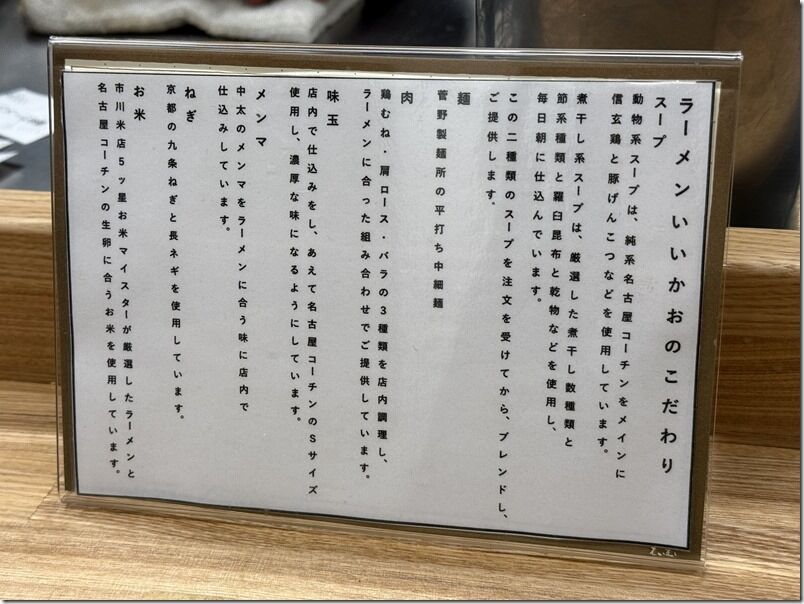 ラーメンいいかおのこだわり
スープ
動物系スープは、純系名古屋コーチンをメインに
信玄鶏と豚げんこつなどを使用しています。
煮干し系スープは、厳選した煮干し数種類と
節系種類と羅臼昆布と乾物などを使用し、
毎日朝に仕込んでいます。
この二種類のスープを注文を受けてから、ブレンドし、
ご提供します。
麺
菅野製麺所の平打ち中細麺
肉
鶏むね・肩ロース・バラの3種類を店内調理し、
ラーメンに合った組み合わせでご提供しています。
味玉
店内で仕込みをし、あえて名古屋コーチンのSサイズ
使用し、濃厚な味になるようにしています。
メンマ
中太のメンマをラーメンに合う味に店内で
仕込みしています。
ねぎ
京都の九条ねぎと長ネギを使用しています。
お米
市川米店5ッ星お米マイスターが厳選したラーメンと
名古屋コーチンの生卵に合うお米を使用しています。